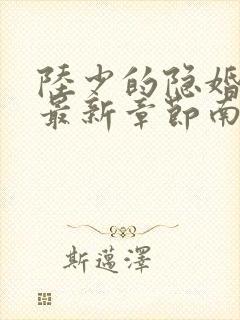 陸少的隐婚
最新章節南
斯邁澤